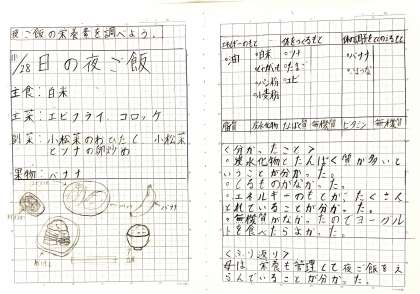 夜ご飯の栄養素を調べよう。
11/28日の夜ご飯
主食：白米
主菜：エビフライ コロッケ
副菜：小松菜のおひたし 小松菜とツナの卵炒め
果物：バナナ
バナナ
エネルギーのもと 体をつくるもと 体の調子をととのえるもと
・油 ・白米 ・ツナ ・バナナ
・じゃがいも ・たまご
・パン粉 ・エビ
・小麦粉
脂質 炭水化物 たんぱく質 無機質 ビタミン 無機質
＜分かったこと＞
・炭水化物とたんぱく質が多いと
いうことが分かった。
・しるものがなかった。
・エネルギーのもとが、たくさん
とれていることが分かった。
・無機質がなかったのでヨーグル
トを食べたらよかった。
＜ふり返り＞
母は、栄養も管理して夜ご飯をえ
らんでいることが分かった。